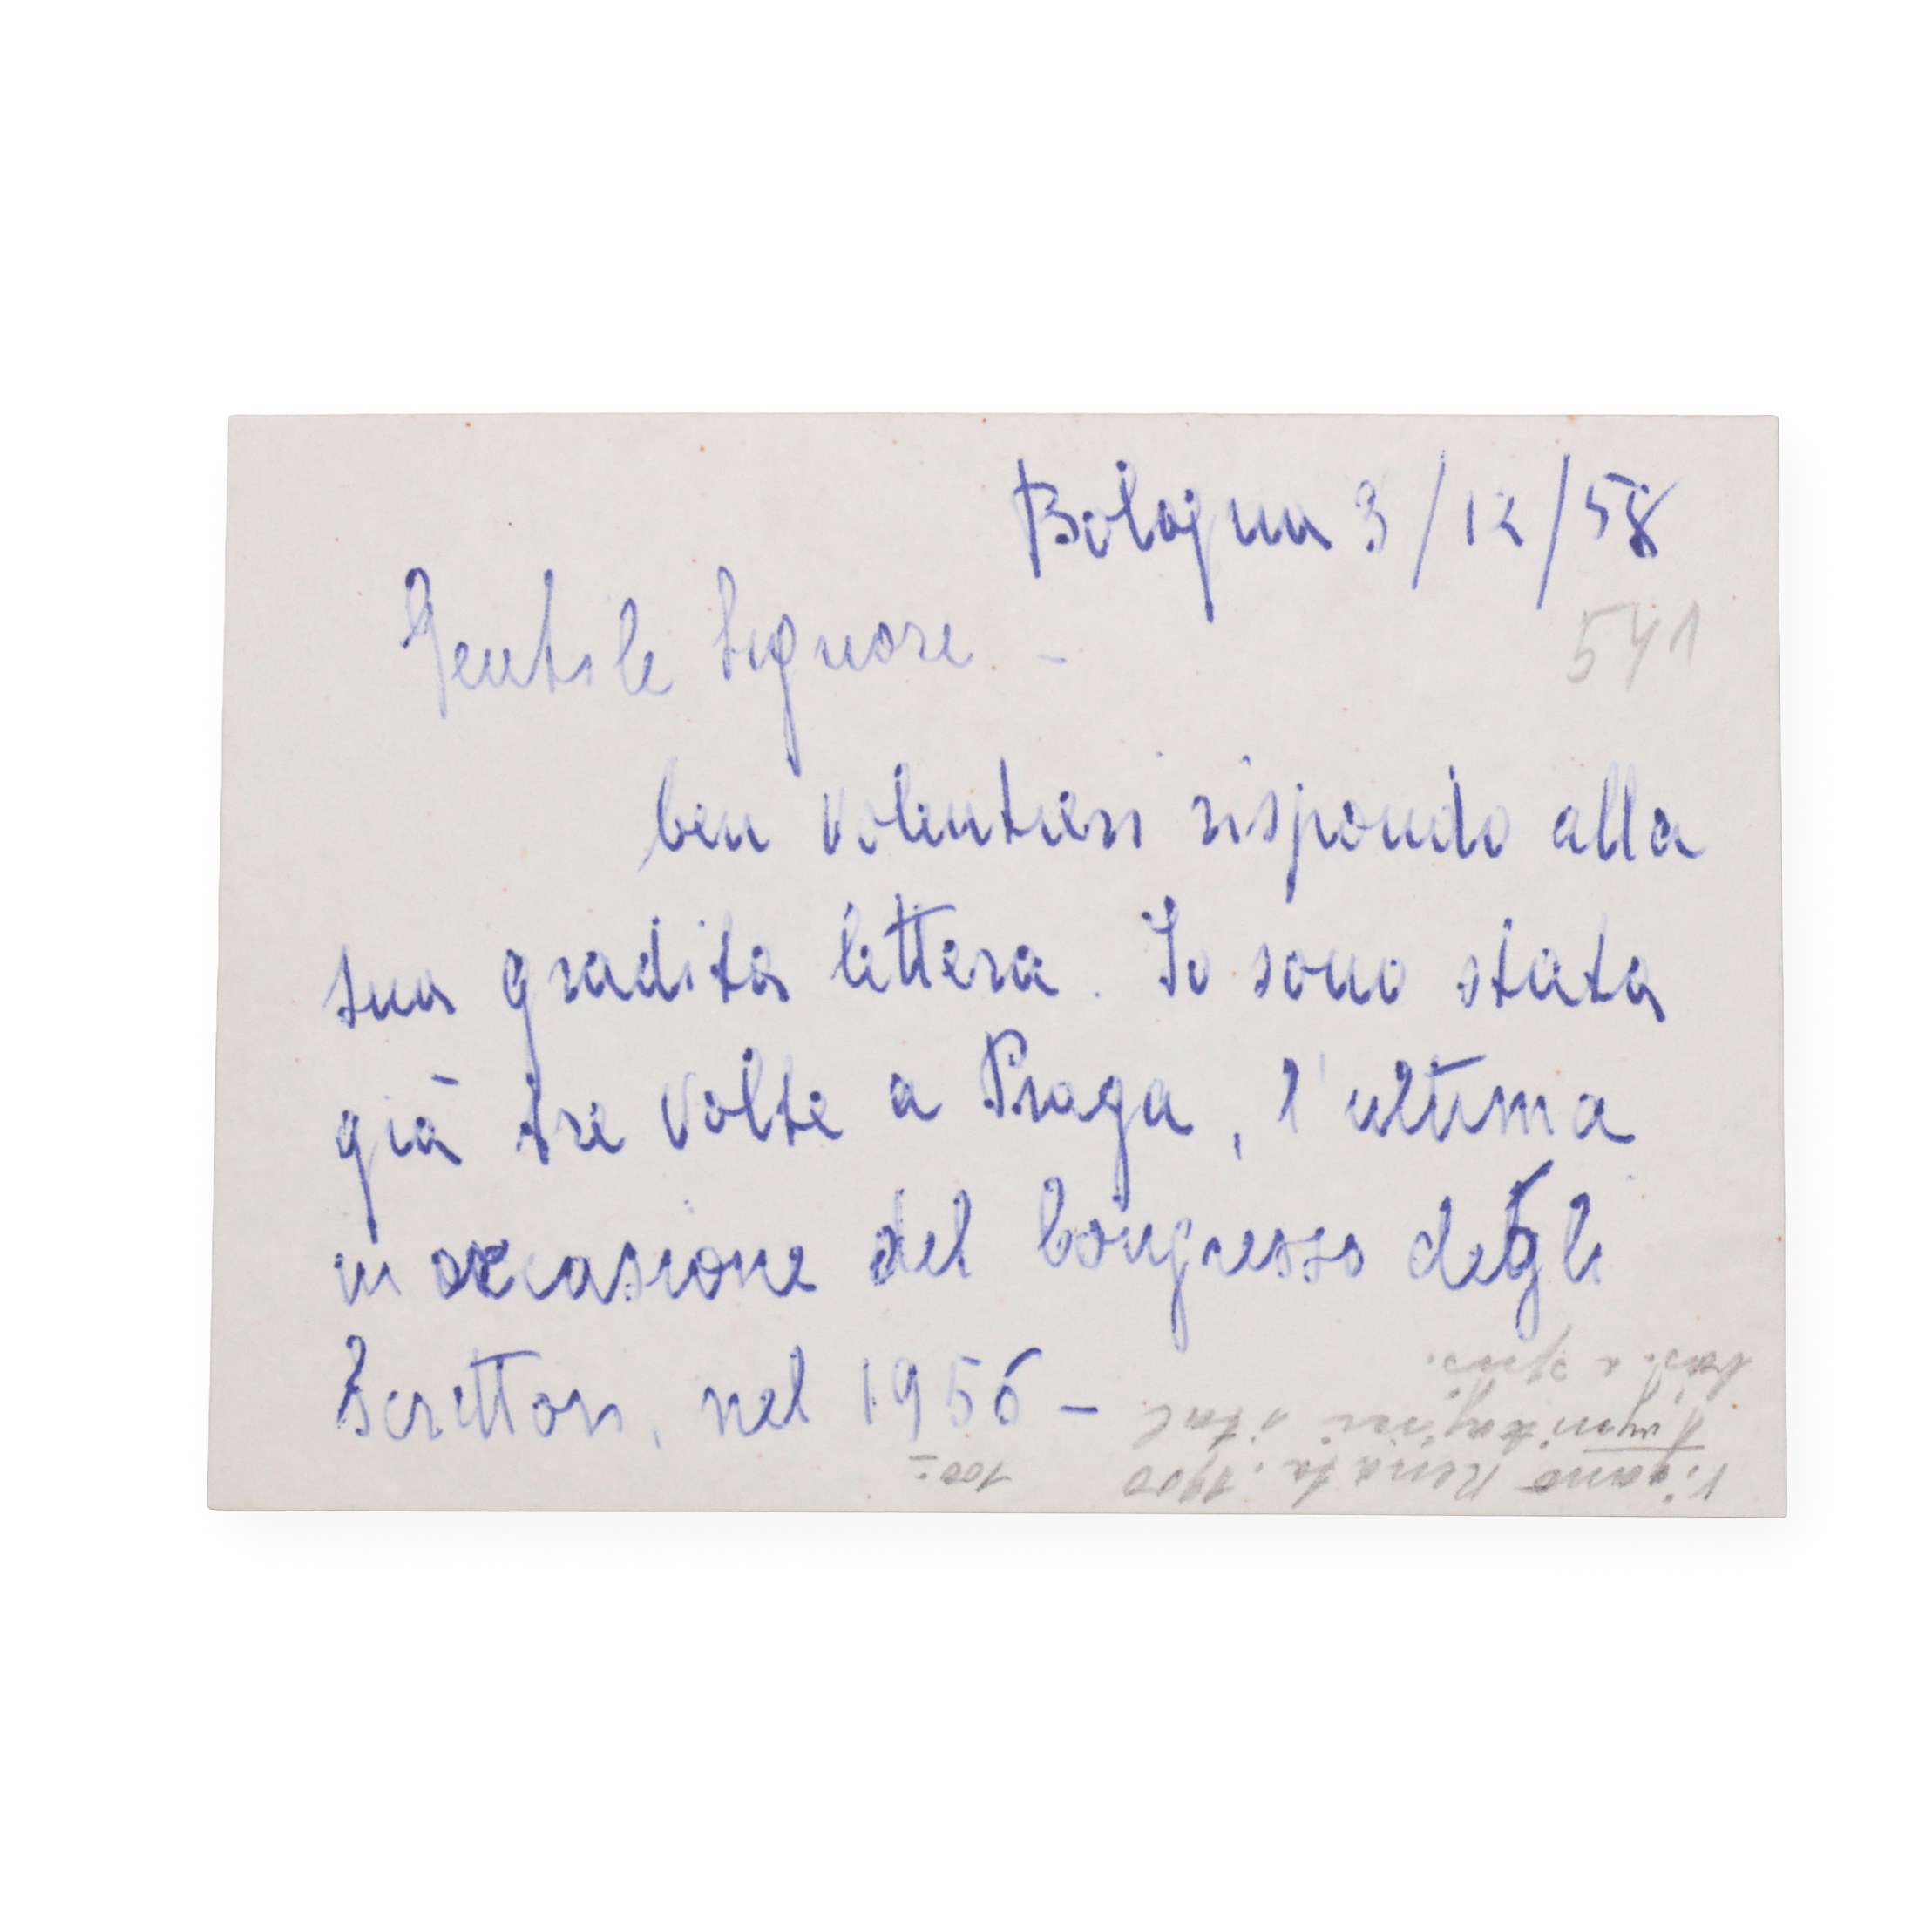 Bologna 3/12/58
541
Gentile Signore -
ben volentieri rispondo alla
sua gradita lettera. Io sono stata
già tre volte a Praga, l'ultima
in occasione del Congresso degli
Scrittori, nel 1956 -
Viganò Renata. 1900
ital
bás. a
100.-